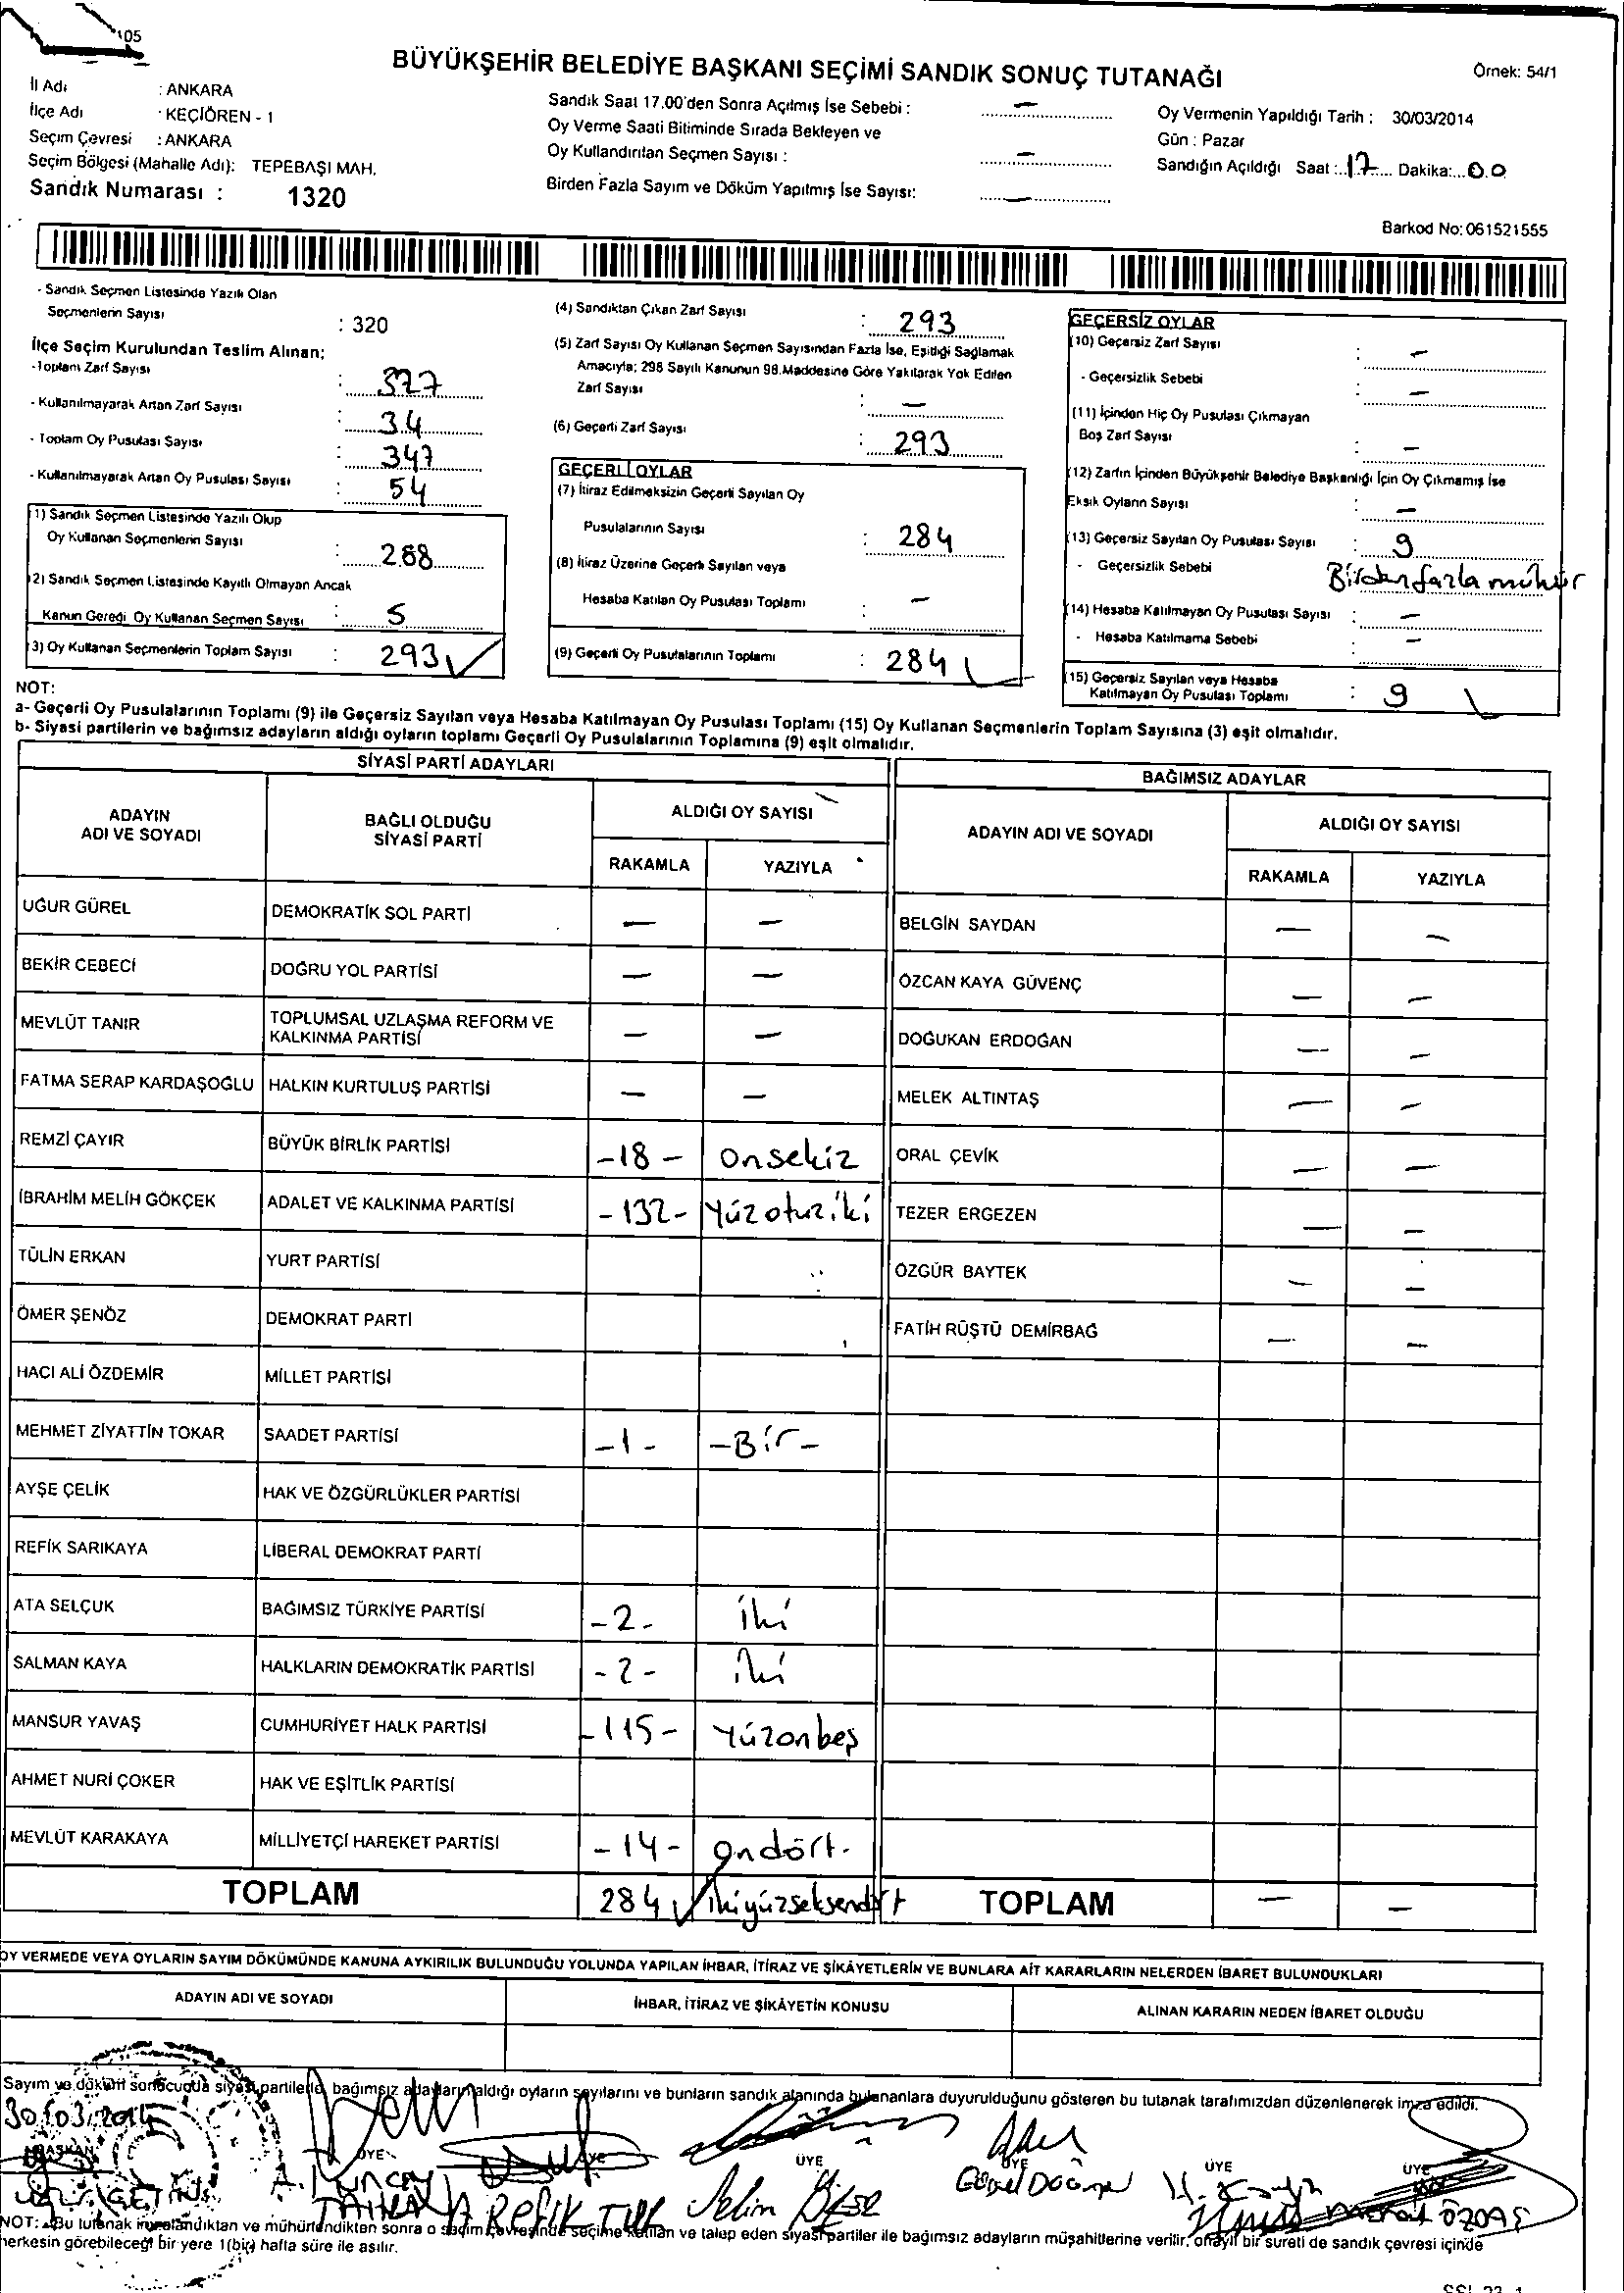 105
BÜYÜKŞEHİR BELEDİYE BAŞKANI SEÇİMİ SANDIK SONUÇ TUTANAĞI
Örnek: 54/1
İl Adı : ANKARA
İlçe Adı : KEÇİÖREN - 1
Seçim Çevresi : ANKARA
Seçim Bölgesi (Mahalle Adı): TEPEBAŞI MAH.
Sandık Numarası : 1320
Sandık Saat 17.00'den Sonra Açılmış İse Sebebi : —
Oy Verme Saati Bitiminde Sırada Bekleyen ve
Oy Kullandırılan Seçmen Sayısı : —
Birden Fazla Sayım ve Döküm Yapılmış İse Sayısı: —
Oy Vermenin Yapıldığı Tarih : 30/03/2014
Gün : Pazar
Sandığın Açıldığı Saat : 17 Dakika: 00
Barkod No: 061521555
- Sandık Seçmen Listesinde Yazılı Olan
Seçmenlerin Sayısı : 320
İlçe Seçim Kurulundan Teslim Alınan;
-Toplam Zarf Sayısı : 327
- Kullanılmayarak Artan Zarf Sayısı : 34
- Toplam Oy Pusulası Sayısı : 347
- Kullanılmayarak Artan Oy Pusulası Sayısı : 54
(1) Sandık Seçmen Listesinde Yazılı Olup
Oy Kullanan Seçmenlerin Sayısı : 288
(2) Sandık Seçmen Listesinde Kayıtlı Olmayan Ancak
Kanun Gereği Oy Kullanan Seçmen Sayısı : 5
(3) Oy Kullanan Seçmenlerin Toplam Sayısı : 293
(4) Sandıktan Çıkan Zarf Sayısı : 293
(5) Zarf Sayısı Oy Kullanan Seçmen Sayısından Fazla İse, Eşitliği Sağlamak
Amacıyla; 298 Sayılı Kanunun 98.Maddesine Göre Yakılarak Yok Edilen
Zarf Sayısı : —
(6) Geçerli Zarf Sayısı : 293
GEÇERLİ OYLAR
(7) İtiraz Edilmeksizin Geçerli Sayılan Oy
Pusulalarının Sayısı : 284
(8) İtiraz Üzerine Geçerli Sayılan veya
Hesaba Katılan Oy Pusulası Toplamı : —
(9) Geçerli Oy Pusulalarının Toplamı : 284
GEÇERSİZ OYLAR
(10) Geçersiz Zarf Sayısı : —
- Geçersizlik Sebebi : —
(11) İçinden Hiç Oy Pusulası Çıkmayan
Boş Zarf Sayısı : —
(12) Zarfın İçinden Büyükşehir Belediye Başkanlığı İçin Oy Çıkmamış İse
Eksik Oyların Sayısı : —
(13) Geçersiz Sayılan Oy Pusulası Sayısı : 9
- Geçersizlik Sebebi Birden fazla mühür
(14) Hesaba Katılmayan Oy Pusulası Sayısı : —
- Hesaba Katılmama Sebebi : —
(15) Geçersiz Sayılan veya Hesaba
Katılmayan Oy Pusulası Toplamı : 9
NOT:
a- Geçerli Oy Pusulalarının Toplamı (9) ile Geçersiz Sayılan veya Hesaba Katılmayan Oy Pusulası Toplamı (15) Oy Kullanan Seçmenlerin Toplam Sayısına (3) eşit olmalıdır.
b- Siyasi partilerin ve bağımsız adayların aldığı oyların toplamı Geçerli Oy Pusulalarının Toplamına (9) eşit olmalıdır.
SİYASİ PARTİ ADAYLARI
ADAYIN
ADI VE SOYADI
BAĞLI OLDUĞU
SİYASİ PARTİ
ALDIĞI OY SAYISI
RAKAMLA YAZIYLA
UĞUR GÜREL DEMOKRATİK SOL PARTİ — —
BEKİR CEBECİ DOĞRU YOL PARTİSİ — —
MEVLÜT TANIR TOPLUMSAL UZLAŞMA REFORM VE
KALKINMA PARTİSİ — —
FATMA SERAP KARDAŞOĞLU HALKIN KURTULUŞ PARTİSİ — —
REMZİ ÇAYIR BÜYÜK BİRLİK PARTİSİ -18- onsekiz
İBRAHİM MELİH GÖKÇEK ADALET VE KALKINMA PARTİSİ -132- Yüzotuziki
TÜLİN ERKAN YURT PARTİSİ
ÖMER ŞENÖZ DEMOKRAT PARTİ
HACI ALİ ÖZDEMİR MİLLET PARTİSİ
MEHMET ZİYATTİN TOKAR SAADET PARTİSİ -1- -Bir-
AYŞE ÇELİK HAK VE ÖZGÜRLÜKLER PARTİSİ
REFİK SARIKAYA LİBERAL DEMOKRAT PARTİ
ATA SELÇUK BAĞIMSIZ TÜRKİYE PARTİSİ -2- iki
SALMAN KAYA HALKLARIN DEMOKRATİK PARTİSİ -2- iki
MANSUR YAVAŞ CUMHURİYET HALK PARTİSİ -115- Yüzonbeş
AHMET NURİ ÇOKER HAK VE EŞİTLİK PARTİSİ
MEVLÜT KARAKAYA MİLLİYETÇİ HAREKET PARTİSİ -14- ondört.
TOPLAM 284 ikiyüzseksendört
BAĞIMSIZ ADAYLAR
ADAYIN ADI VE SOYADI
ALDIĞI OY SAYISI
RAKAMLA YAZIYLA
BELGİN SAYDAN — —
ÖZCAN KAYA GÜVENÇ — —
DOĞUKAN ERDOĞAN — —
MELEK ALTINTAŞ — —
ORAL ÇEVİK — —
TEZER ERGEZEN — —
ÖZGÜR BAYTEK — —
FATİH RÜŞTÜ DEMİRBAĞ — —
TOPLAM — —
OY VERMEDE VEYA OYLARIN SAYIM DÖKÜMÜNDE KANUNA AYKIRILIK BULUNDUĞU YOLUNDA YAPILAN İHBAR, İTİRAZ VE ŞİKÂYETLERİN VE BUNLARA AİT KARARLARIN NELERDEN İBARET BULUNDUKLARI
ADAYIN ADI VE SOYADI
İHBAR, İTİRAZ VE ŞİKÂYETİN KONUSU
ALINAN KARARIN NEDEN İBARET OLDUĞU
Sayım ve döküm sonucunda siyasi partilerle, bağımsız adayların aldığı oyların sayılarını ve bunların sandık alanında bulunanlara duyurulduğunu gösteren bu tutanak tarafımızdan düzenlenerek imza edildi.
30/03/2014
BAŞKAN ÜYE ÜYE ÜYE ÜYE ÜYE ÜYE
REFİK TÜRK Selim
ÖZDAŞ
NOT: Bu tutanak imzalandıktan ve mühürlendikten sonra o seçim çevresinde seçime katılan ve talep eden siyasi partiler ile bağımsız adayların müşahitlerine verilir, onaylı bir sureti de sandık çevresi içinde
herkesin görebileceği bir yere 1(bir) hafta süre ile asılır.